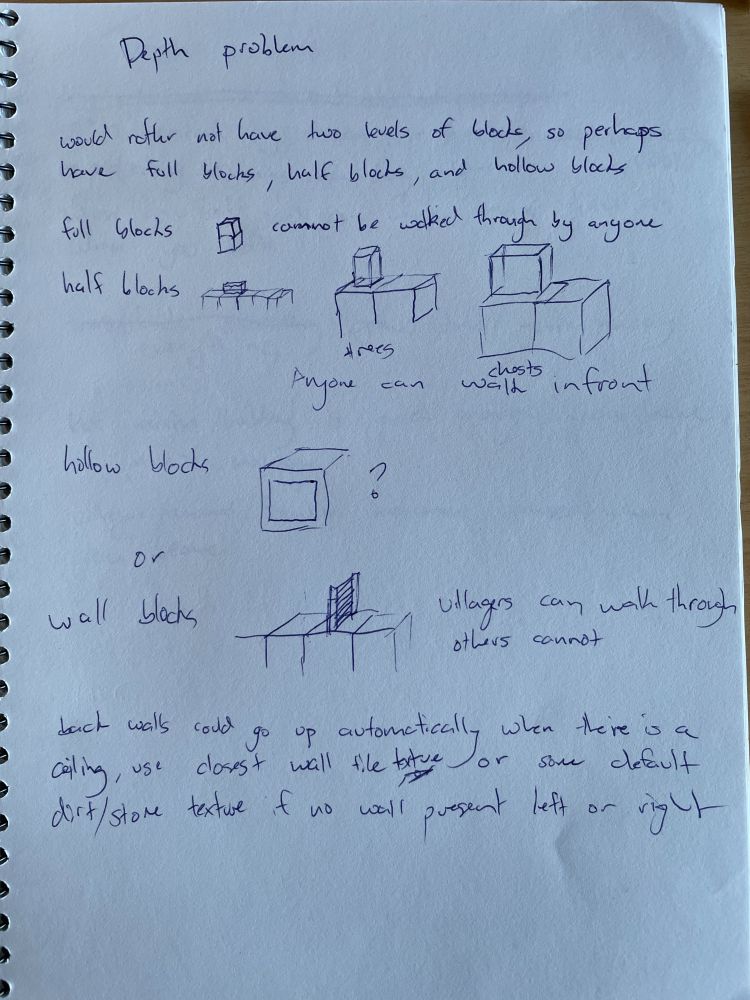 Depth problem
would rather not have two levels of blocks, so perhaps
have full blocks, half blocks, and hollow blocks
full blocks cannot be walked through by anyone
half blocks
trees
chests
Anyone can walk infront
hollow blocks ?
or
wall blocks
villagers can walk through
others cannot
back walls could go up automatically when there is a
ceiling, use closest wall tile texture or some default
dirt/stone texture if no wall present left or right